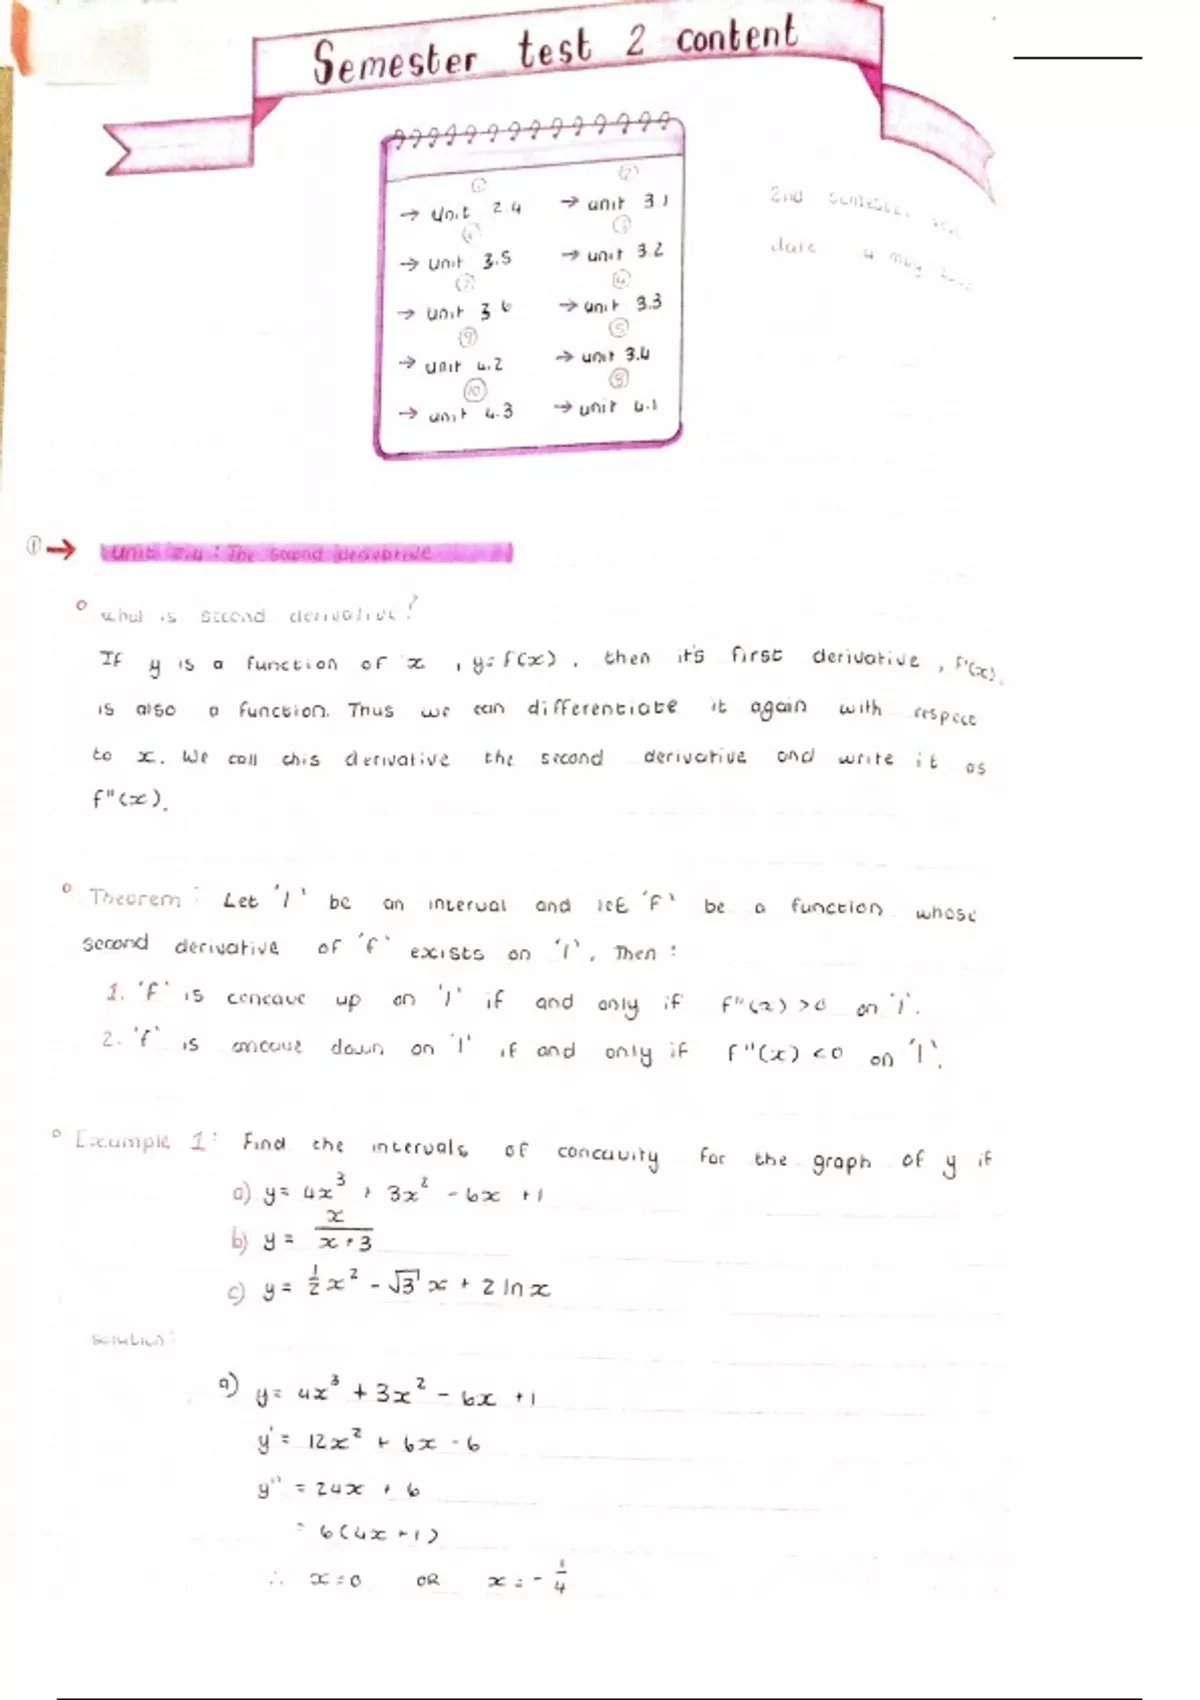 Semester test 2 content
① ②
→ unit 2.4 → unit 3.1
⑥ ③
→ unit 3.5 → unit 3.2
⑦ ④
→ unit 3.6 → unit 3.3
⑨ ⑤
→ unit 4.2 → unit 3.4
⑩ ⑧
→ unit 4.3 → unit 4.1
2nd semester test
date 4 may
① → Unit 2.4 : The second derivative
° what is second derivative?
If y is a function of x , y = f(x) , then it's first derivative , f'(x),
is also a function. Thus we can differentiate it again with respect
to x. We call this derivative the second derivative and write it as
f"(x).
° Theorem : Let 'I' be an interval and let 'f' be a function whose
second derivative of 'f' exists on 'I'. Then :
1. 'f' is concave up on 'I' if and only if f"(x) >0 on 'I'.
2. 'f' is concave down on 'I' if and only if f"(x) <0 on 'I'.
° Example 1: Find the intervals of concavity for the graph of y if
a) y = 4x³ + 3x² - 6x + 1
b) y = x/(x+3)
c) y = ½x² - √3 x + 2 ln x
solution:
a) y = 4x³ + 3x² - 6x + 1
y' = 12x² + 6x - 6
y" = 24x + 6
= 6(4x + 1)
∴ x = 0 OR x = - 1/4